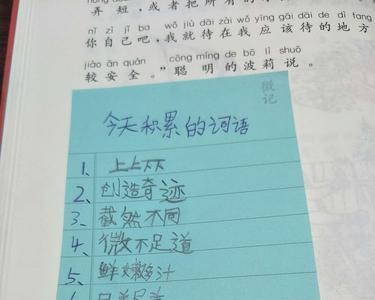 弄短，或者把所有的
nǐ zì jǐ ba wǒ jiù dāi zài wǒ yīng gāi dāi de dì fang
你自己吧，我就待在我应该待的地方
jiào ān quán cōng míng de bō lì shuō
较安全。”聪明的波莉说。
今天积累的词语
1、上上下下
2、创造奇迹
3、截然不同
4、微不足道
5、鲜嫩多汁